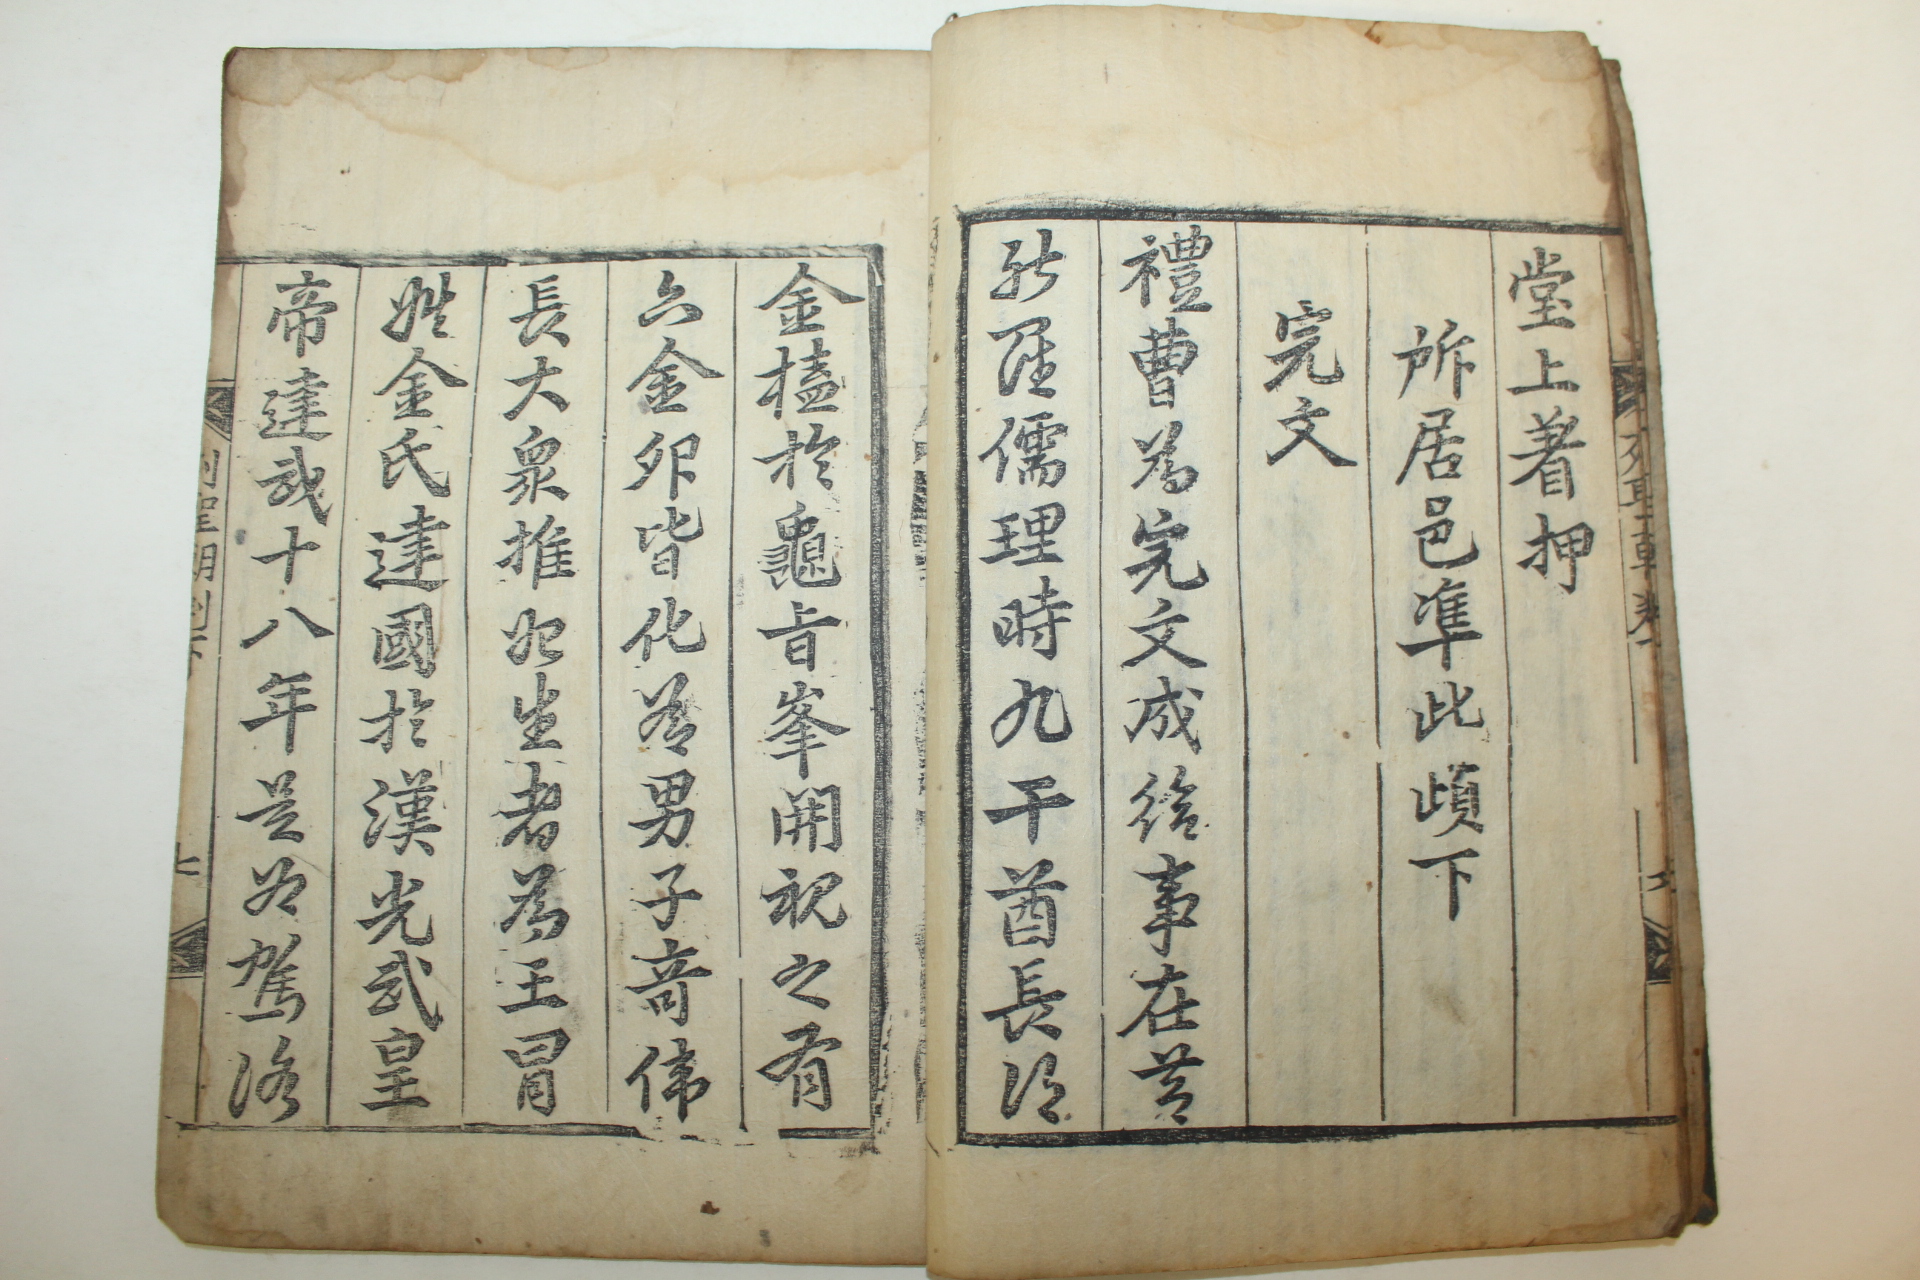 堂上着押
所居邑準此頉下
完文
禮曹爲完文成給事在昔
新羅儒理時九干酋長得
金榼於龜旨峯開視之有
六金卵皆化爲男子奇偉
長大衆推始生者爲王冒
姓金氏建國於漢光武皇
帝建武十八年是爲駕洛